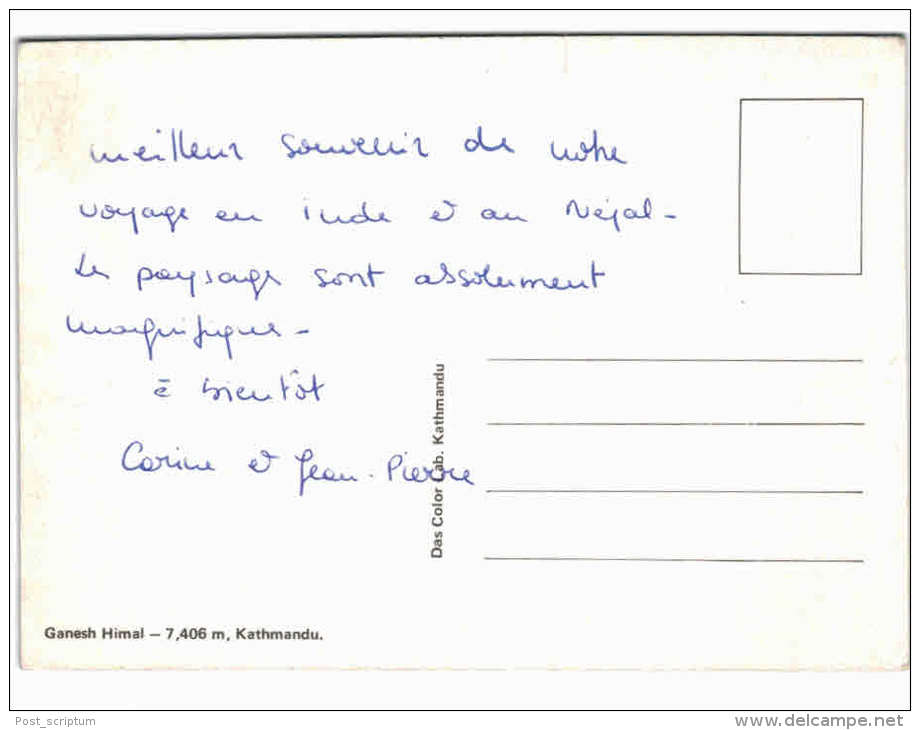 meilleur souvenir de notre
voyage en inde et au Népal -
Les paysage sont absolument
magnifique -
à bientôt
Carine et Jean-Pierre
Das Color Lab. Kathmandu
Ganesh Himal – 7,406 m, Kathmandu.
Post_scriptum
www.delcampe.net